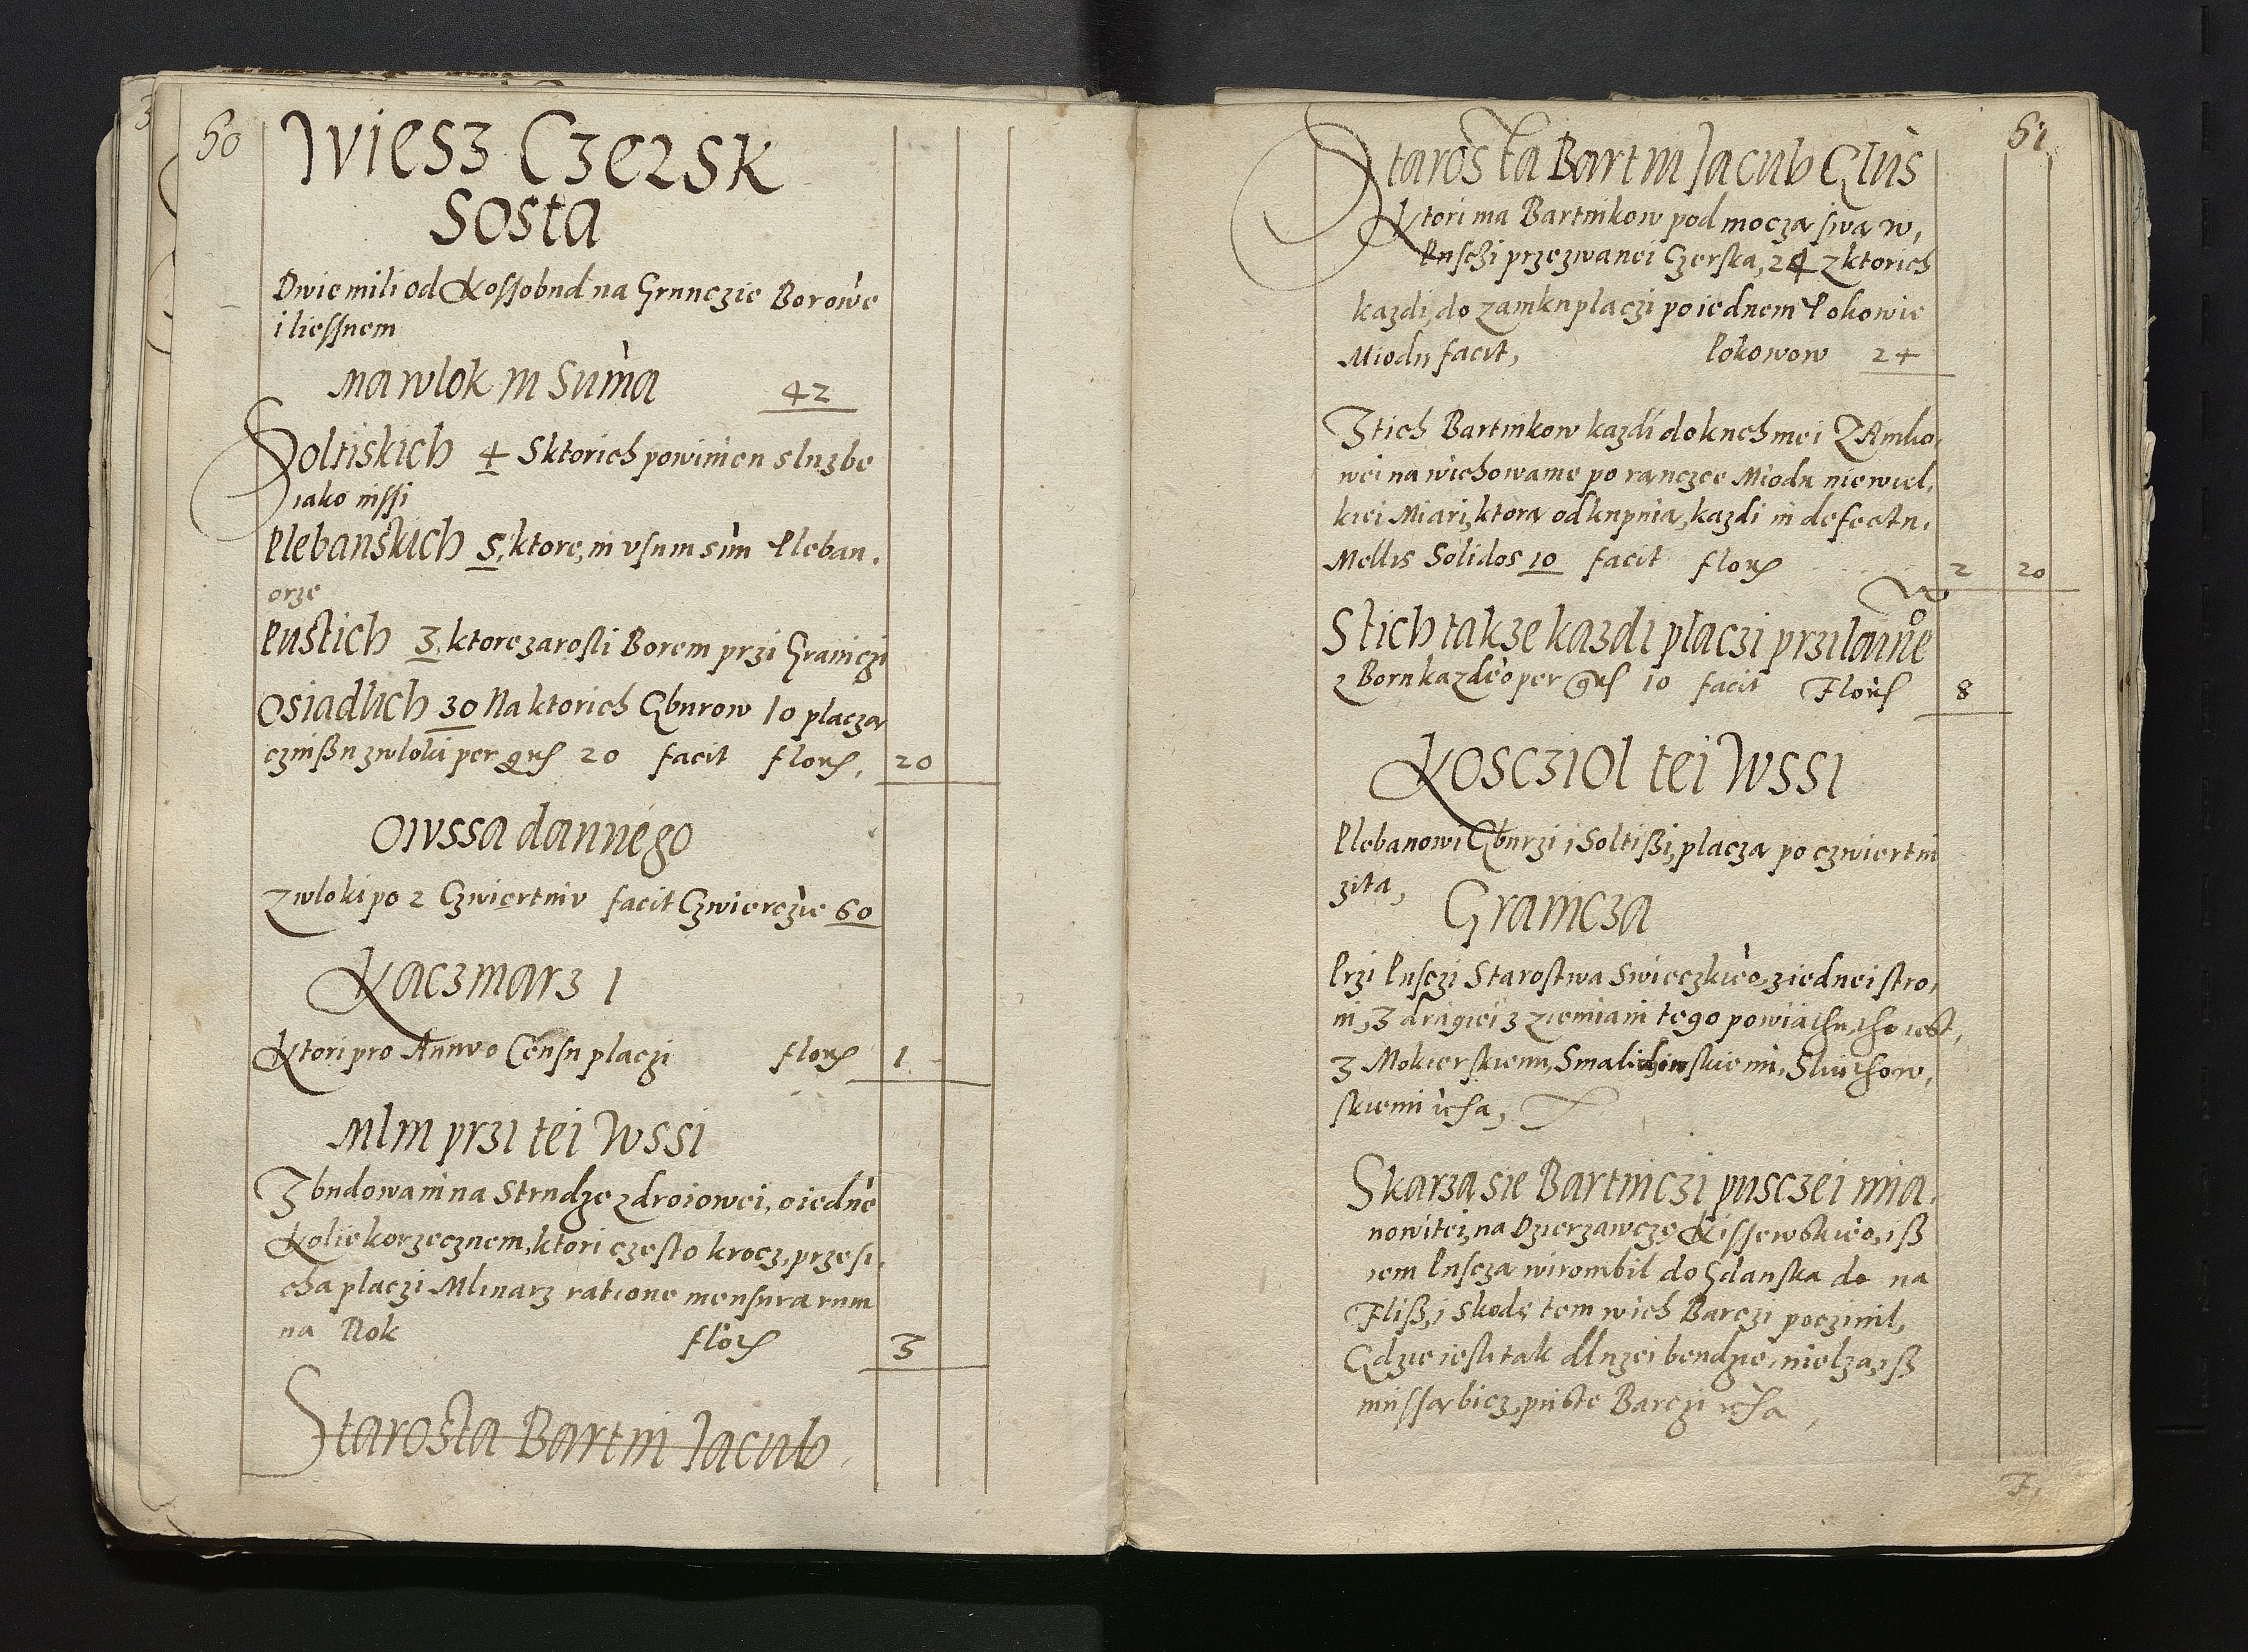 60
Wiesz Czersk
Sosta
Dwie mili od Kossobud na Grunczie Borowe
i liessnem
Ma wlok in Suma 42
Soltiskich 4 S ktorich powinien sluzbe
iako inssi
Plebanskich 5, ktore, in vsum sun Pleban.
orze
Pustich 3, ktore zarosli Borem przi Graniczi
Osiadlich 30 Na ktorich Gburow 10 placza
czinßu z wloki per grs 20 facit flors, 20
Owssa dannego
Z wloki po 2 Czwiertniv facit Czwierczie 60
Kaczmarz 1
Ktori pro Annvo Censu placzi flors 1
Mlin przi tei Wssi
Zbudowani na Strudze zdroiowei, o iedne
Kolie korzecznem, ktori czesto krocz, przesi,
cha placzi Mlinarz ratione mensurarum
na Rok flors 3
Starosta Bartni Jacub
61
Starosta Bartni Jacub Glus
Ktori ma Bartnikow pod mocza swa w,
Puschi przezwanei Czerska, 24 z ktorich
kazdi, do zamku placzi po iednem Pokowie
Miodu facit, Pokowow 24
Z tich Bartnikow kazdi do kuchmei ZAmko,
wei na wichowanie po ranczce Miodu niewiel,
kiei Miari, ktora odkupuia, kazdi in defectu,
Mellis Solidos 10 facit flors 2 20
S tich takze kazdi placzi przilaine
z Boru kazdeo per grs 10 facit Flors 8
Koscziol tei Wssi
Plebanowi Gburzi i Soltißi, placza po czwiertni
zita,
Granicza
Przi Pusczi Starostwa Swieczkieo, z iednei stro,
ni, Z drugiei z ziemiani tego powiathu, tho iest,
Z Mokierskiemi, Smalichowskiemi, Sluchow,
skiemi etca,
Skarza sie Bartniczi pusczei mia,
nowitei, na Dzierzawcze Kissewskieo, iß
iem Puscza wirombil do Gdanska do na
Fliß, i skode tem w ich Barczi poczinil,
Gdzie iesli tak dluzei bendzie, nielza, iß
mussa bicz puste Barczi etca,
F,